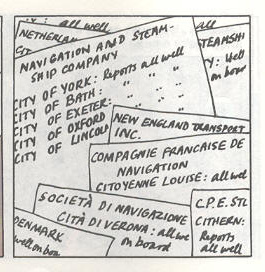 : all well
NETHERLA
all
STEAMSHI
Y: Well
on boar
NAVIGATION AND STEAM-
SHIP COMPANY
CITY OF YORK: Reports all well
CITY OF BATH: " " "
CITY OF EXETER: " " "
CITY OF OXFORD
CITY OF LINCOLN
NEW ENGLAND TRANSPORT
INC.
COMPAGNIE FRANCAISE DE
NAVIGATION
CITOYENNE LOUISE: all wel
SOCIETÀ DI NAVIGAZIONE
CITÀ DI VERONA: all we
on board
C.P.E. STL
CITHERN:
Reports
all well
DENMARK
well on boa